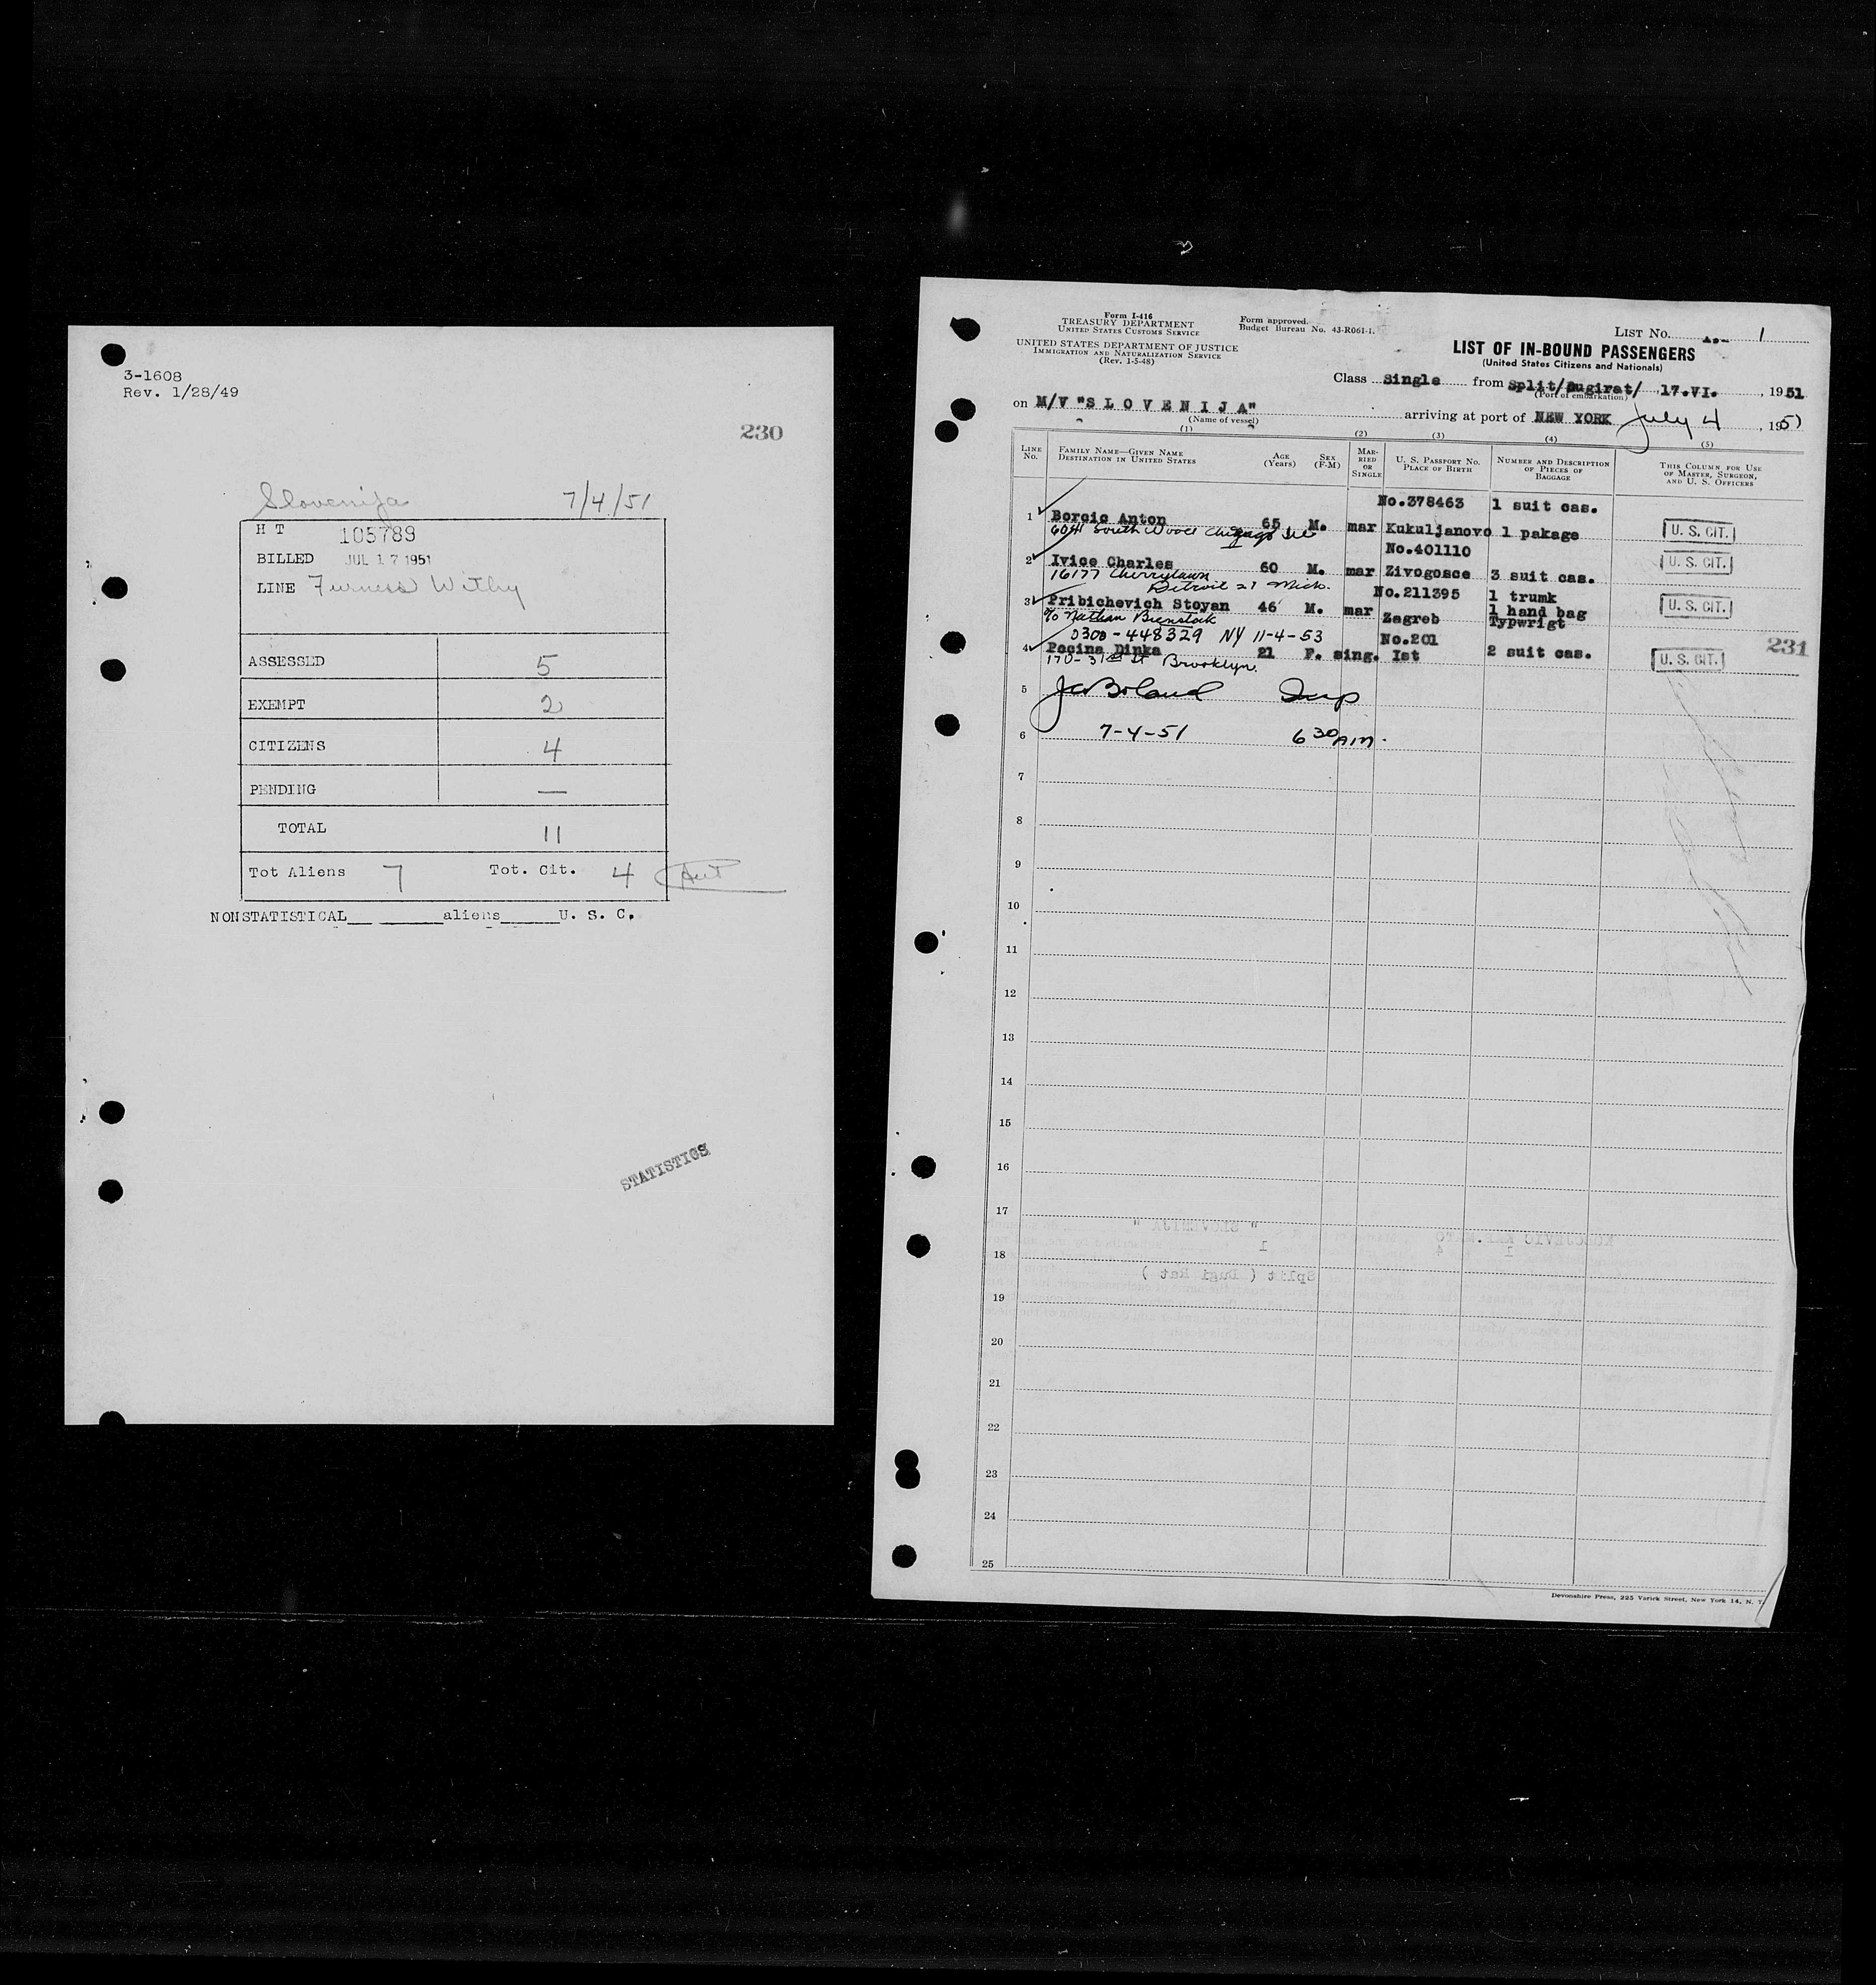 3-1608
Rev. 1/28/49
230
Slovenija 7/4/51
H T 105789
BILLED JUL 17 1951
LINE Furness Withy
ASSESSED 5
EXEMPT 2
CITIZENS 4
PENDING —
TOTAL 11
Tot Aliens 7 Tot. Cit. 4
NONSTATISTICAL___ ______aliens_____U. S. C.
STATISTICS
Form I-416
TREASURY DEPARTMENT
UNITED STATES CUSTOMS SERVICE
UNITED STATES DEPARTMENT OF JUSTICE
IMMIGRATION AND NATURALIZATION SERVICE
(Rev. 1-5-48)
Form approved.
Budget Bureau No. 43-R061-1.
LIST No. 1
LIST OF IN-BOUND PASSENGERS
(United States Citizens and Nationals)
Class Single from Split/Dugirat/ 17.VI. , 1951
(Port of embarkation)
on M/V "S L O V E N I J A" arriving at port of NEW YORK July 4 , 1951
(Name of vessel)
(1) (2) (3) (4) (5)
LINE No.
FAMILY NAME—GIVEN NAME
DESTINATION IN UNITED STATES
AGE (Years)
SEX (F-M)
MARRIED OR SINGLE
U. S. PASSPORT NO.
PLACE OF BIRTH
NUMBER AND DESCRIPTION OF PIECES OF BAGGAGE
THIS COLUMN FOR USE OF MASTER, SURGEON, AND U. S. OFFICERS
No.378463 1 suit cas.
1 Borcic Anton 65 M. mar Kukuljanovo 1 pakage U. S. CIT.
South Wood Chicago Ill
No.401110
2 Ivice Charles 60 M. mar Zivogosce 3 suit cas. U. S. CIT.
16177 Cherrylawn
Detroit 21 Mich.
No.211395 1 trumk
3 Pribichevich Stoyan 46 M. mar Zagreb 1 hand bag U. S. CIT.
Typwrigt
c/o Nathan Bienstock
0300-448329 NY 11-4-53
No.201
4 Pocina Dinka 21 F. sing. Ist 2 suit cas. U. S. CIT.
231
170-31st St Brooklyn.
5 Boland Insp
6 7-4-51 6 30 AM.
7
8
9
10
11
12
13
14
15
16
17
18
19
20
21
22
23
24
25
Devonshire Press, 225 Varick Street, New York 14, N. Y.